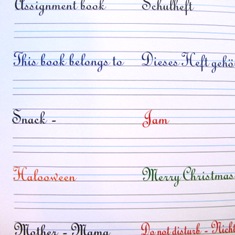 Assignment book Schulheft
This book belongs to Dieses Heft gehö
Snack - Jam
Halooween Merry Christmas
Mother - Mama Do not disturb - Nicht